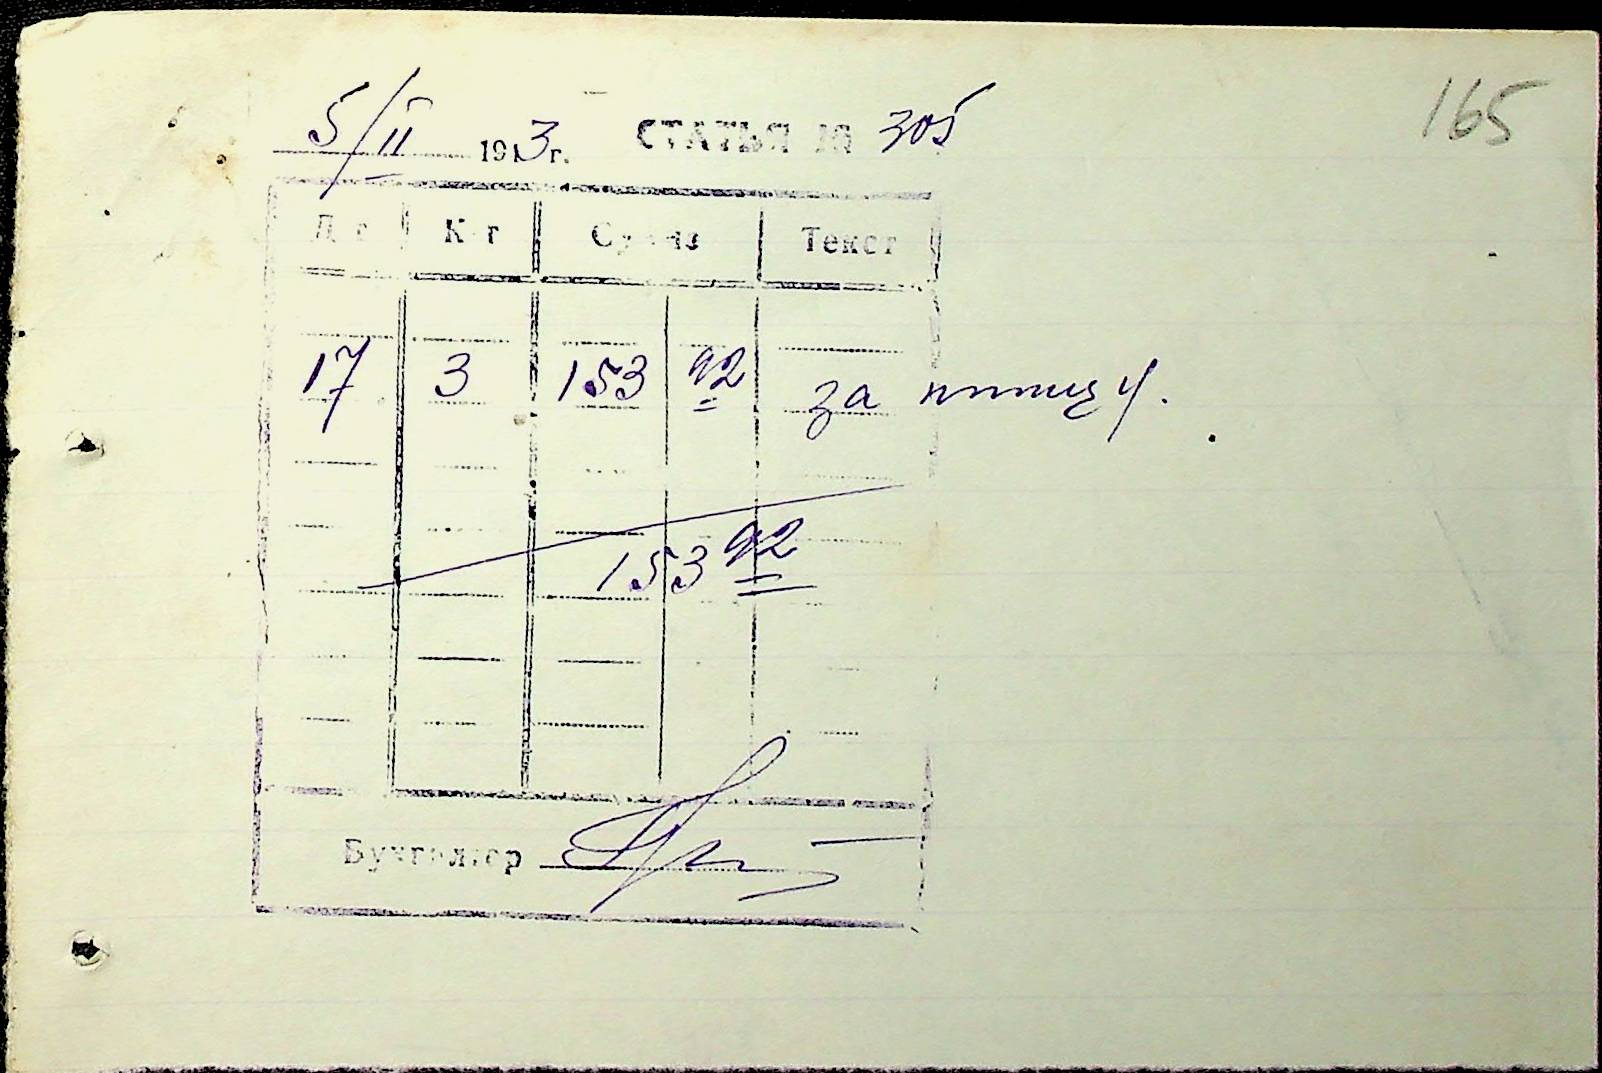 165
5/II 1943 г. СТАТЬЯ № 305
Д-т К-т Сумма Текст
17 3 153 92 за птицу.
153 92
Бухгалтер